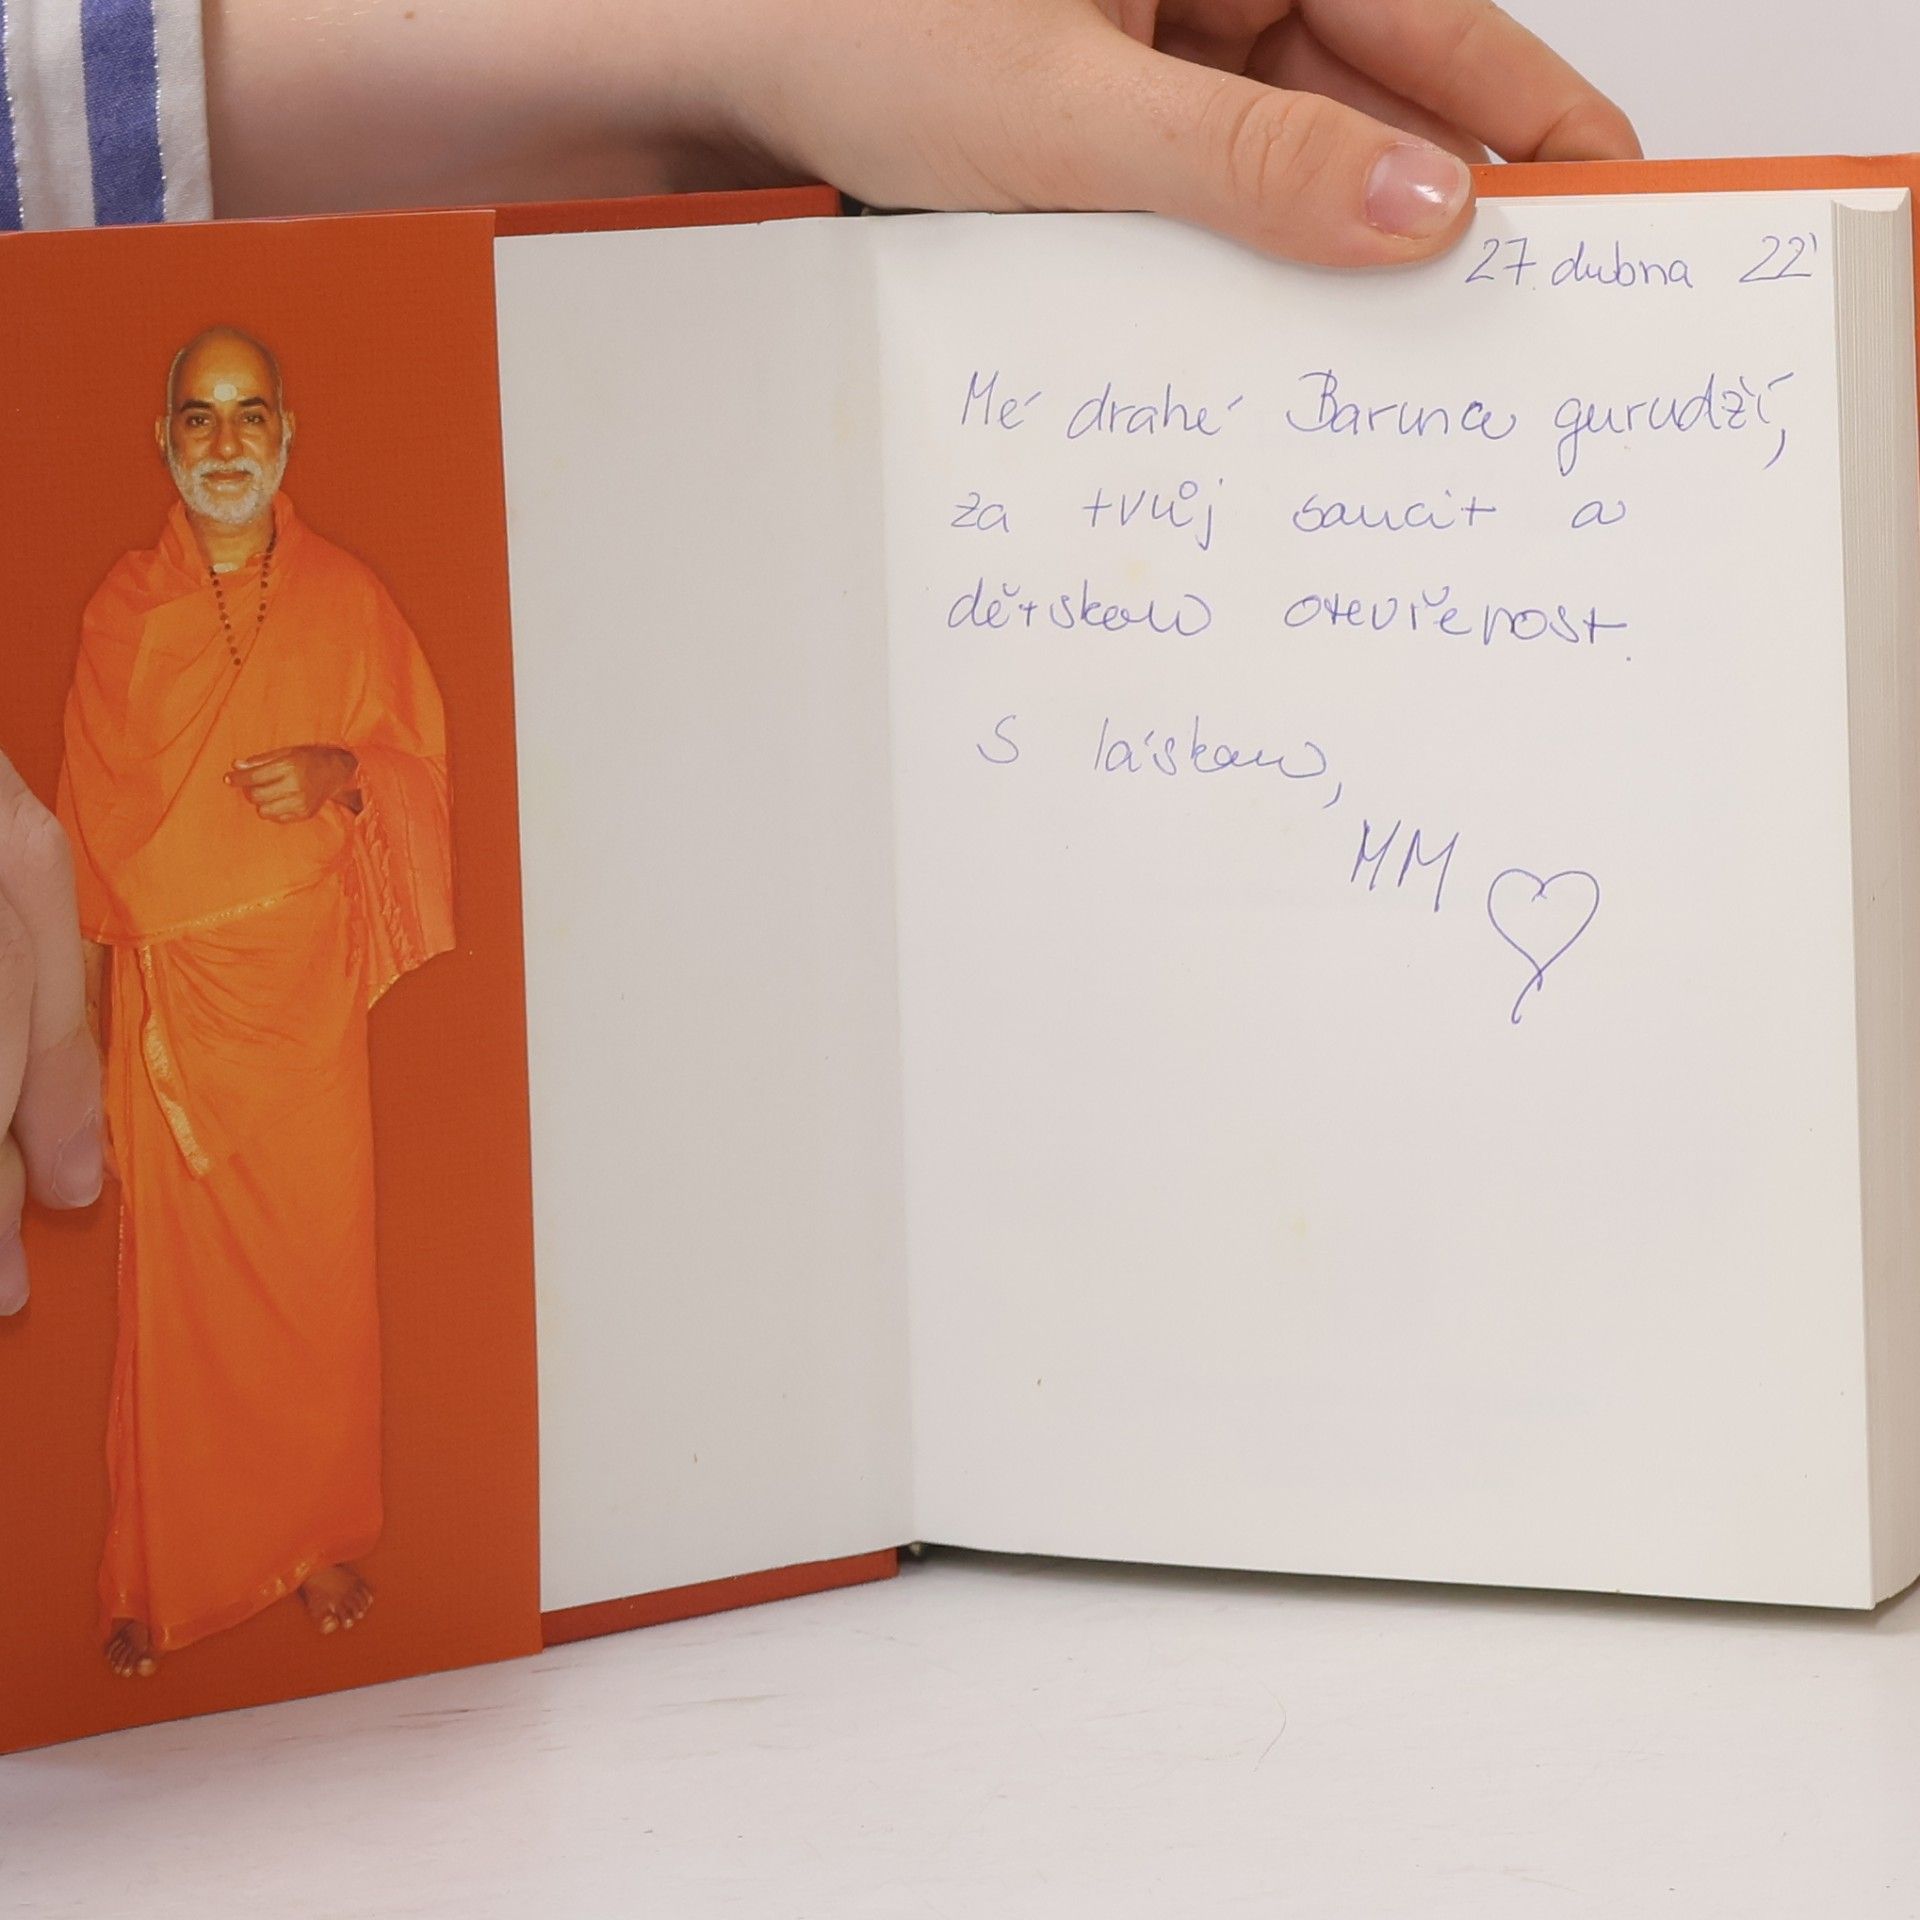 27. dubna 22'
Mé drahé Barunce gurudží,
za tvůj soucit a
dětskou otevřenost.
S láskou,
MM